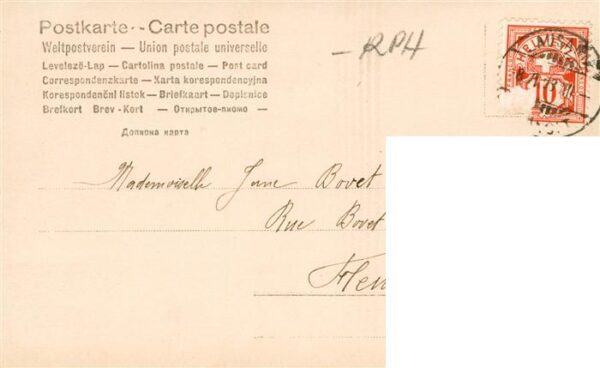 Postkarte - Carte postale
Weltpostverein — Union postale universelle
Levelező-Lap — Cartolina postale — Post card
Correspondenzkarte — Karta korespondencyjna
Korespondenční listok — Briefkaart — Dopisnice
Brefkort Brev-Kort — Открытое-писмо —
Дописна карта
— RPH
10
Mademoiselle Jane Bovet
Rue Bovet
Fleu